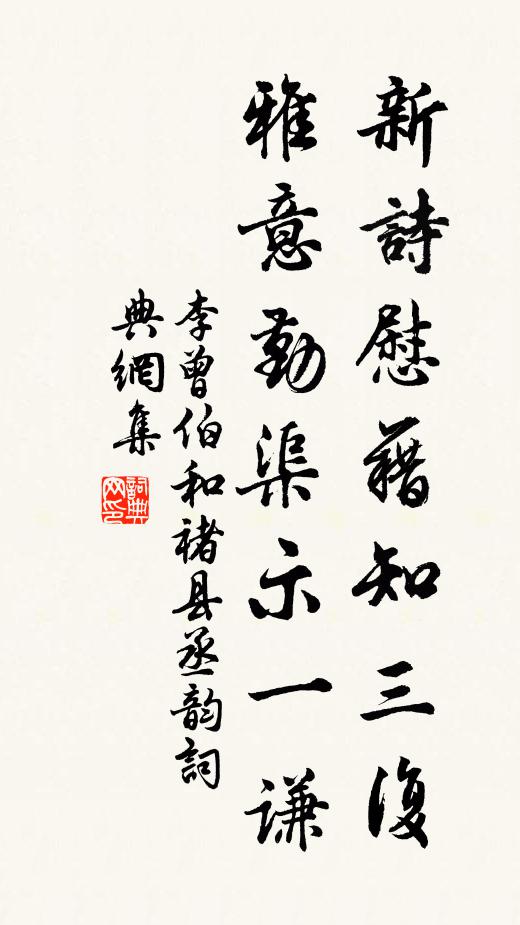 新詩慰藉知三復
雅意勤渠示一谦
李曾伯和褚县丞韵詞
典網集
詞典网印